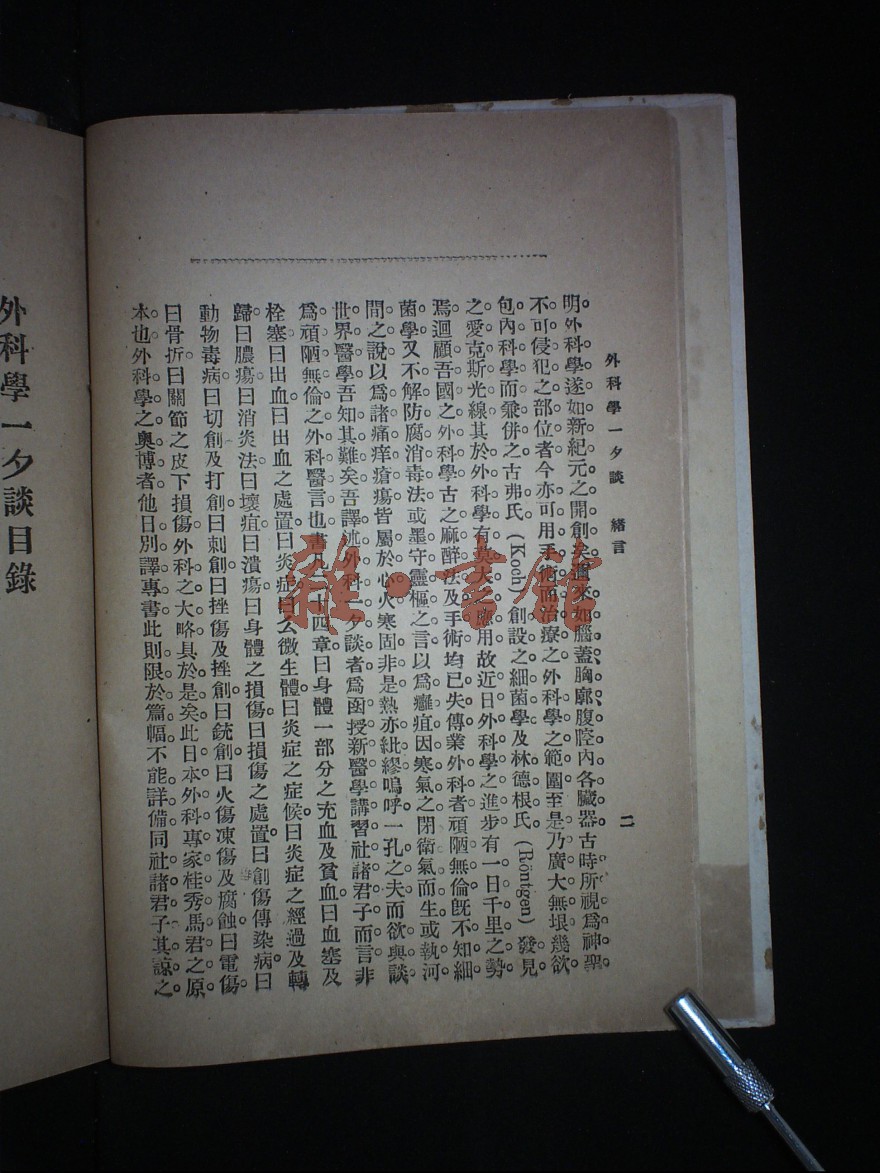 外科學一夕談 緒言 二
明。外科學遂如新紀元之開創矣。邇來如腦蓋、胸廓、腹腔內各臟器。古時所視爲神聖
不可侵犯之部位者。今亦可用手術而治療之。外科學之範圍至是乃廣大無垠。幾欲
包內科學而兼併之。古弗氏(Kooh)創設之細菌學及林德根氏(Röntgen)發見
之愛克斯光線。其於外科學有莫大之應用。故近日外科學之進步有一日千里之勢
焉。迴顧吾國之外科學。古之麻醉法及手術均已失傳。業外科者頑陋無倫。旣不知細
菌學。又不解防腐消毒法。或墨守靈樞之言。以爲癰疽因寒氣之閉衛氣而生。或執河
間之說。以爲諸痛痒瘡瘍皆屬於心火。寒固非是。熱亦紕繆。嗚呼。一孔之夫而欲與談
世界醫學。吾知其難矣。吾譯述外科一夕談者。爲函授新醫學講習社諸君子而言。非
爲頑陋無倫之外科醫言也。書凡二十四章。曰身體一部分之充血及貧血。曰血塞及
栓塞。曰出血。曰出血之處置。曰炎症。曰么微生體。曰炎症之症候。曰炎症之經過及轉
歸。曰膿瘍。曰消炎法。曰壞疽。曰潰瘍。曰身體之損傷。曰損傷之處置。曰創傷傳染病。曰
動物毒病。曰切創及打創。曰刺創。曰挫傷及挫創。曰銃創。曰火傷凍傷及腐蝕。曰電傷。
曰骨折。曰關節之皮下損傷。外科之大略具於是矣。此日本外科專家桂秀馬君之原
本也。外科學之奧博者。他日別譯專書。此則限於篇幅。不能詳備。同社諸君子其諒之。
外科學一夕談目錄
雜·書館